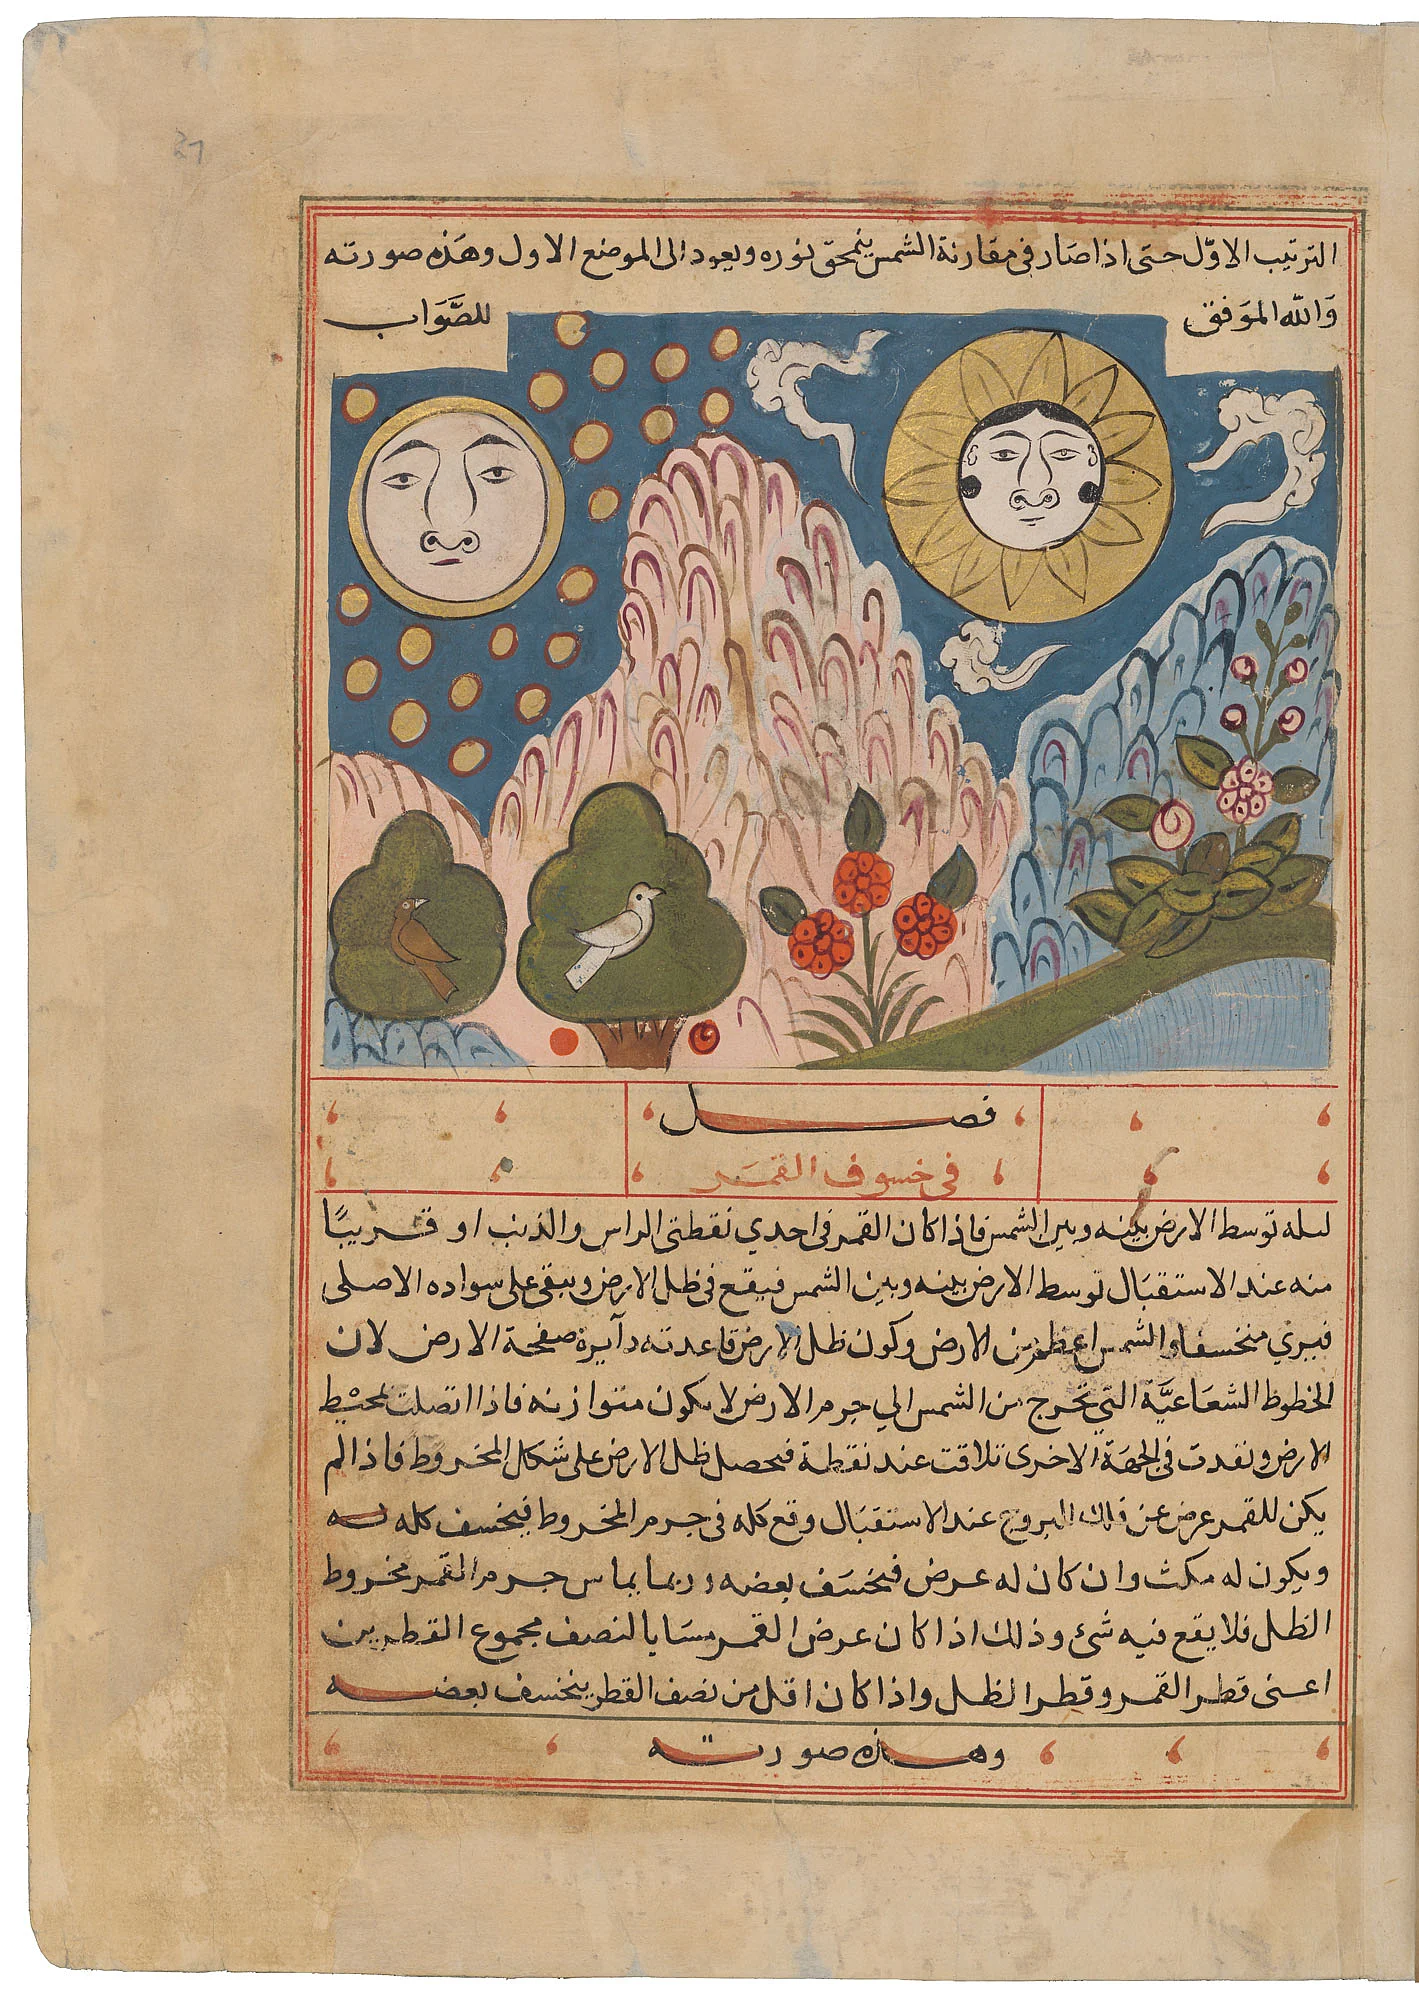 الترتيب الاوّل حتى اذا صار في مقارنة الشمس ينمحق نوره ويعود الى الموضع الاول وهذه صورته
وَالله الموَفق للصَّوَاب
فصل
في خسوف القمَر
توسط الارض بينه وبين الشمس فاذا كان القمر فى احدي نقطتى الراس والذنب او قريبًا
منه عند الاستقبَال توسط الارض بينه وبين الشمس فيقع فى ظل الارض ويبقى على سواده الاصلى
فيري منخسفا والشمس اعظم من الارض وكون ظل الارض قاعدته دآيرة صفحة الارض لان
الخطوط الشعَاعيَّة التي تخرج من الشمس الي جرم الارض لا يكون متوازنه فاذا اتصلت بمحيْط
الارض ونفدت في الجهَة الاخرى تلاقت عند نقطة فيحصل ظل الارض على شكل المخروط فاذا لم
يكن للقمر عرض عن فلك البروج عند الاستقبَال وقع كله فى جرم المخروط فيخسف كله
ويكون له مكث وان كان له عرض فيخسَف بعضه وربما يماس جرم القمر مخروط
الظل فلا يقع فيه شئ وذلك اذا كان عرض القمر مسَايا لنصف مجموع القطرين
اعنى قطر القمر وقطر الظل واذا كان اقل من نصف القطر ينخسف بعضه
وهذه صورته